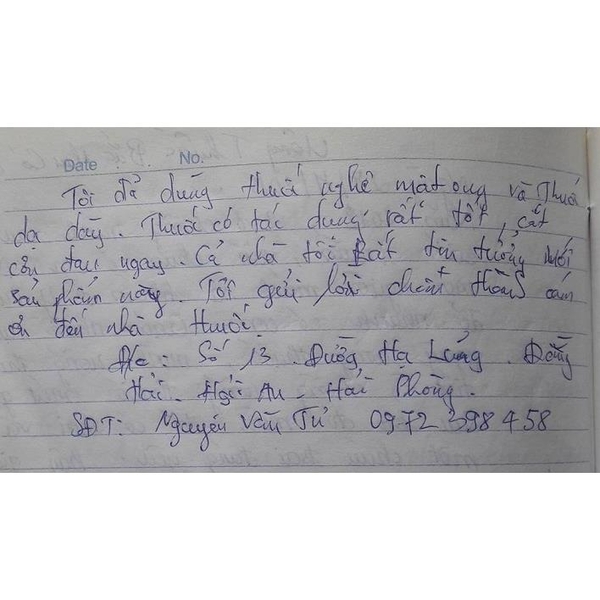 Date No.
Tôi đã dùng thuốc nghệ mật ong và Thuốc
dạ dày. Thuốc có tác dụng rất tốt, cắt
cơn đau ngay. Cả nhà tôi rất tin tưởng với
sản phẩm này. Tôi gửi lời chân thành cảm
ơn đến nhà thuốc.
Đ/c: Số 13. Đường Hạ Lũng. Đằng
Hải. Hải An - Hải Phòng.
SĐT: Nguyễn Văn Tư 0972 398 458